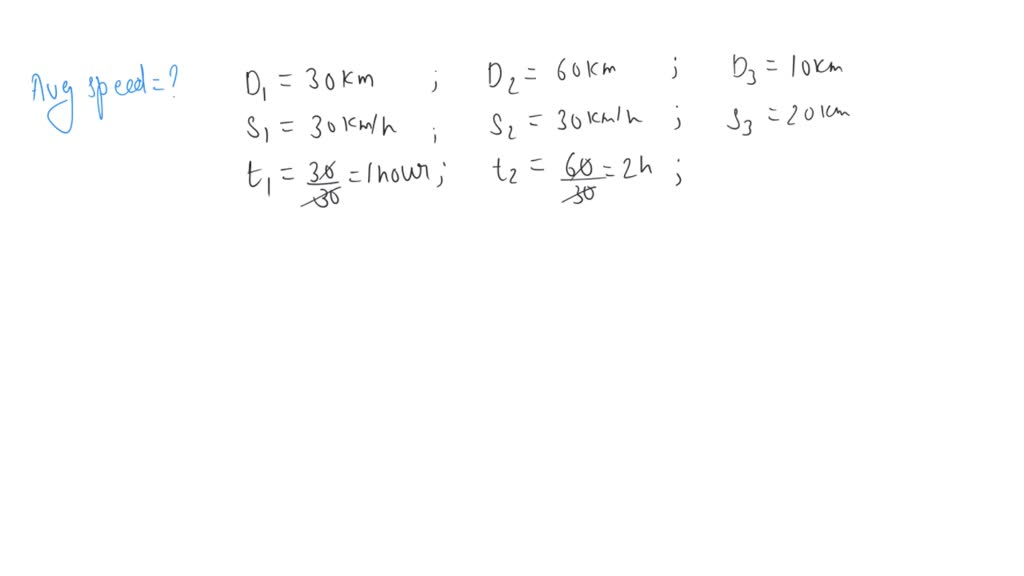 Avg speed=? D₁ = 30km ; D₂ = 60km ; D₃ = 10km
S₁ = 30km/h ; S₂ = 30km/h ; S₃ = 20km
t₁ = 30/30 = 1hour ; t₂ = 60/30 = 2h ;